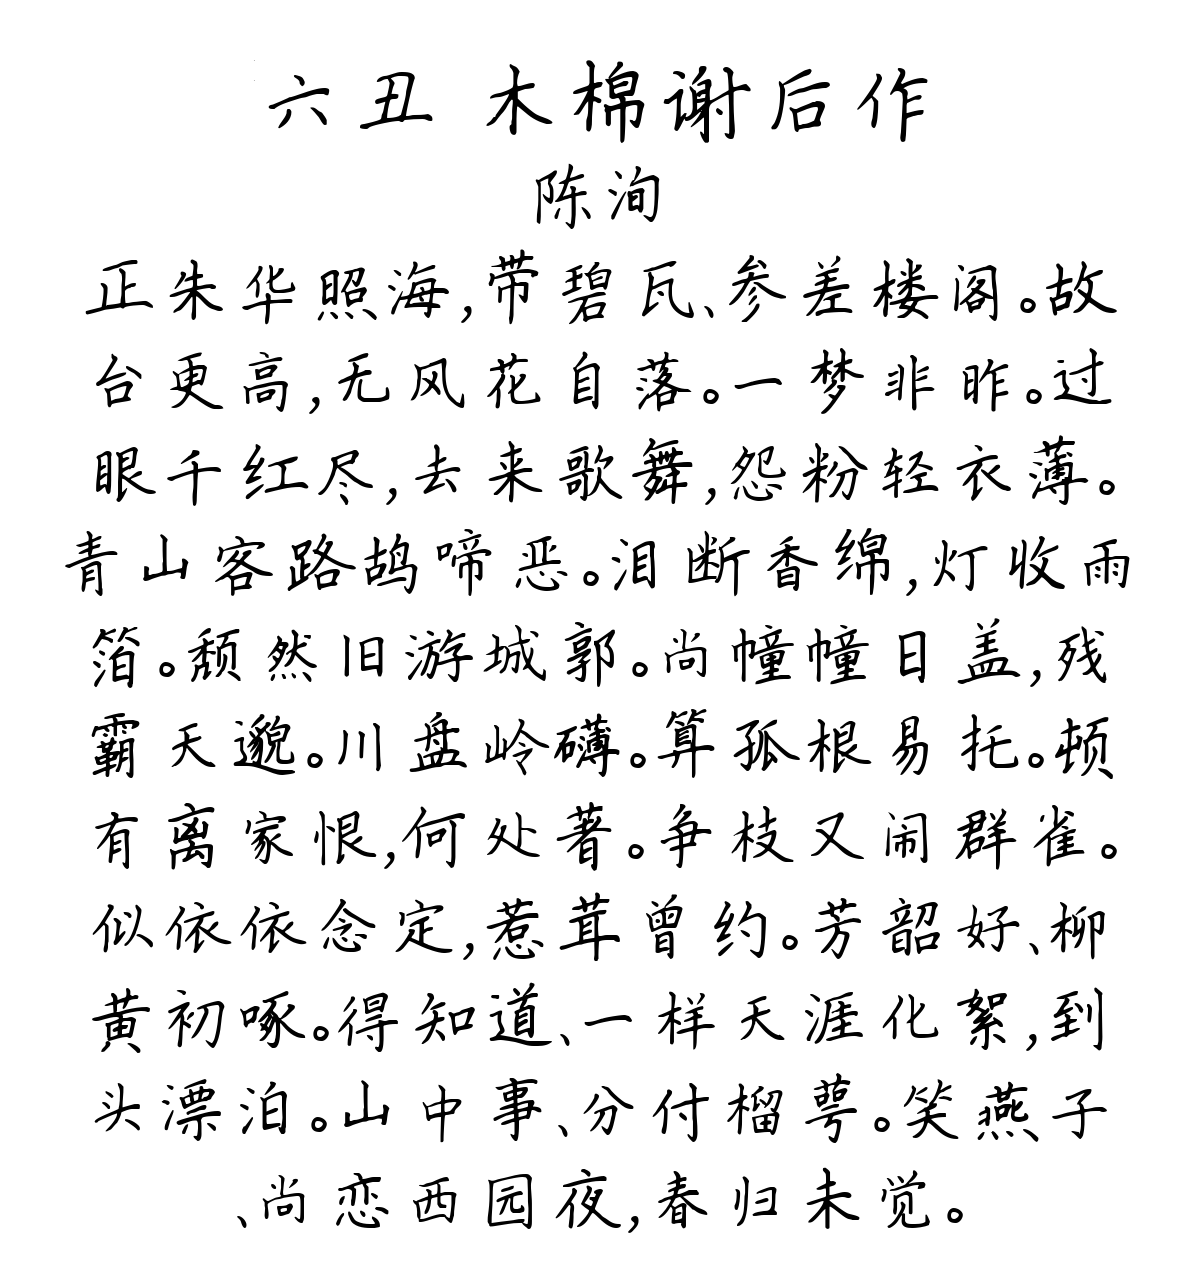 六丑 木棉谢后作
陈洵
正朱华照海,带碧瓦、参差楼阁。故
台更高,无风花自落。一梦非昨。过
眼千红尽,去来歌舞,怨粉轻衣薄。
青山客路鸪啼恶。泪断香绵,灯收雨
箔。颓然旧游城郭。尚幢幢日盖,残
霸天邈。川盘岭礴。算孤根易托。顿
有离家恨,何处著。争枝又闹群雀。
似依依念定,惹茸曾约。芳韶好、柳
黄初啄。得知道、一样天涯化絮,到
头漂泊。山中事、分付榴萼。笑燕子
、尚恋西园夜,春归未觉。